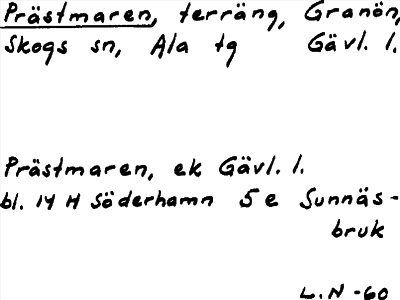 Prästmaren, terräng, Granön,
Skogs sn, Ala tg Gävl. l.
Prästmaren, ek Gävl. l.
bl. 14 H Söderhamn 5 e Sunnäs-
bruk
L.N -60